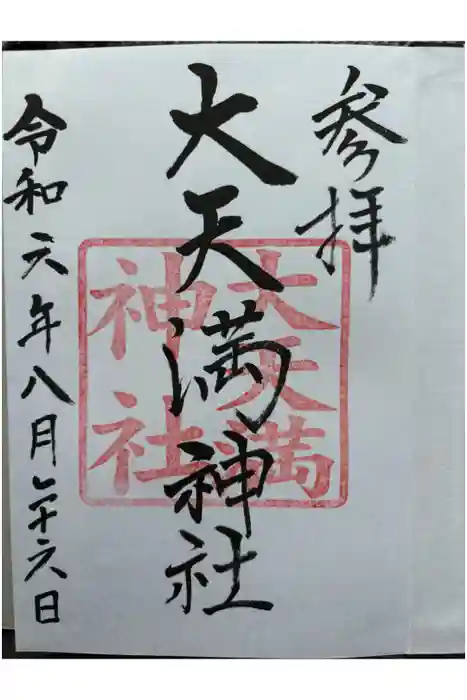 参拝
大天満神社
大天満
神社
令和元年八月二十六日